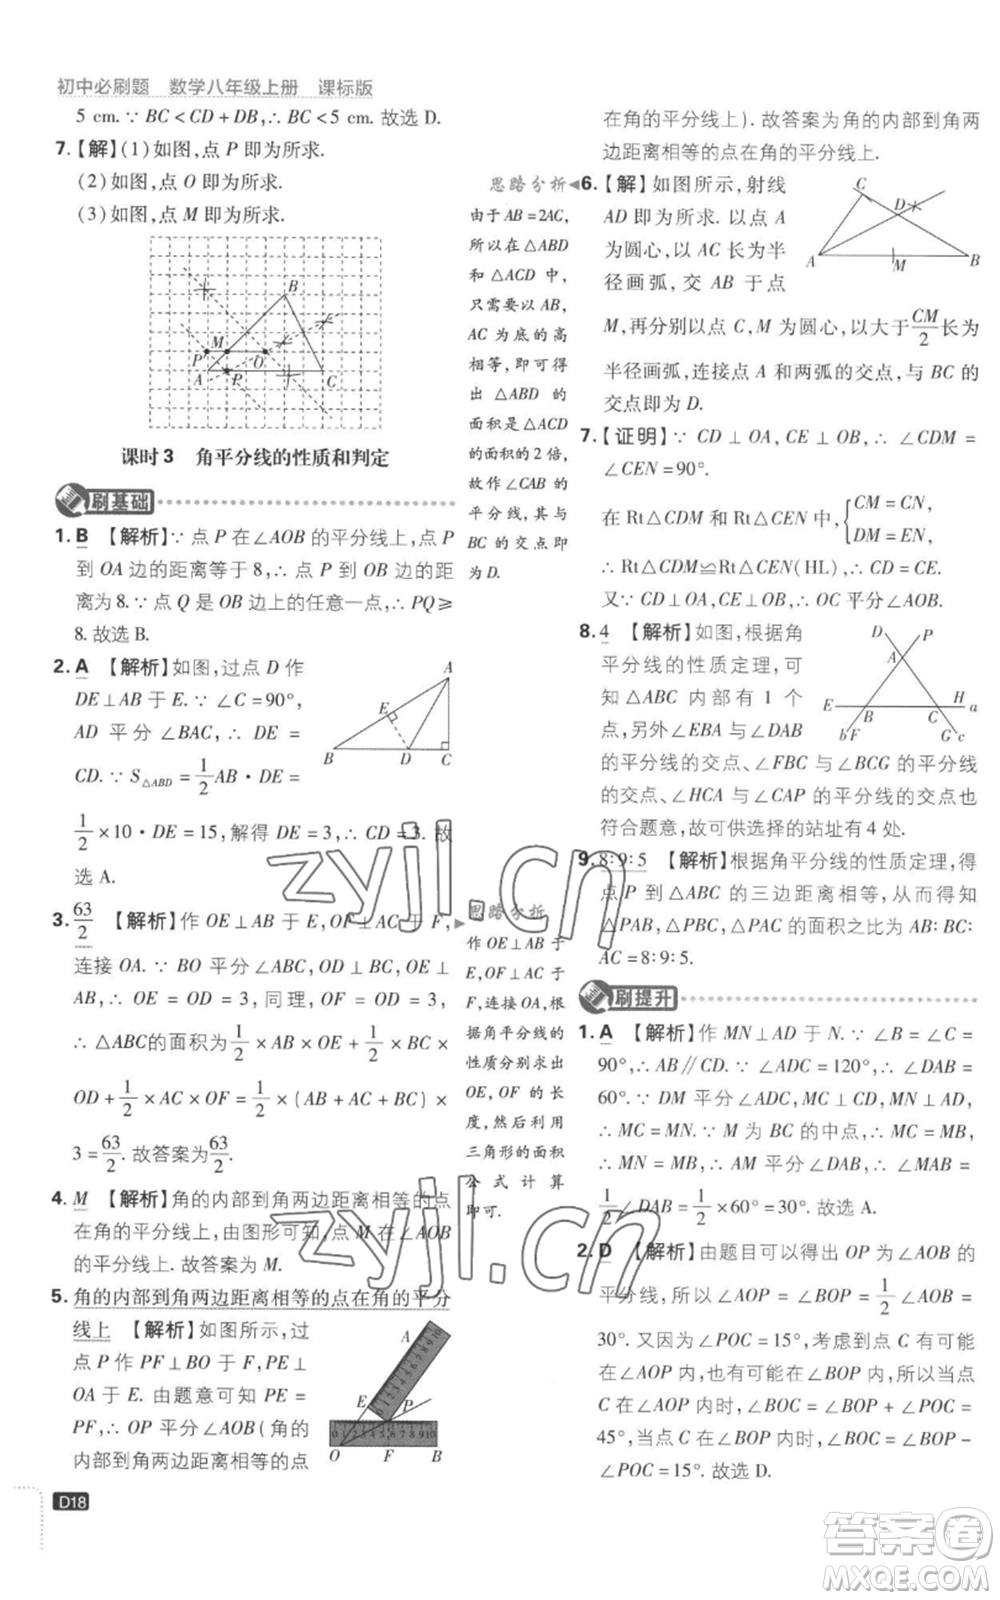 初中必刷题 数学八年级上册 课标版
5 cm. ∵ BC<CD+DB,∴ BC<5 cm. 故选 D.
7.【解】(1)如图,点 P 即为所求.
(2)如图,点 O 即为所求.
(3)如图,点 M 即为所求.
B
P M O
A P C
课时 3 角平分线的性质和判定
刷基础
1. B 【解析】∵ 点 P 在∠AOB 的平分线上,点 P
到 OA 边的距离等于 8,∴ 点 P 到 OB 的距
离为 8. ∵ 点 Q 是 OB 边上的任意一点,∴ PQ≥
8. 故选 B.
2. A 【解析】如图,过点 D 作
DE⊥AB 于 E. ∵ ∠C=90°,
AD 平分∠BAC,∴ DE=
CD. ∵ S△ABD=1/2AB·DE=
1/2×10·DE=15,解得 DE=3,∴ CD=3. 故
选 A.
A
E
B D C
3. 63/2 【解析】作 OE⊥AB 于 E,OF⊥AC 于 F,
连接 OA. ∵ BO 平分∠ABC,OD⊥BC,OE⊥
AB,∴ OE=OD=3,同理,OF=OD=3,
∴ △ABC的面积为1/2×AB×OE+1/2×BC×
OD+1/2×AC×OF=1/2×(AB+AC+BC)×
3=63/2. 故答案为63/2.
4. M 【解析】角的内部到角两边距离相等的点
在角的平分线上,由图形可知,点 M 在∠AOB
的平分线上. 故答案为 M.
5. 角的内部到角两边距离相等的点在角的平分
线上 【解析】如图所示,过
点 P 作 PF⊥BO,PE⊥
OA 于 E. 由题意可知 PE=
PF,∴ OP 平分∠AOB(角的
内部到角两边距离相等的点
A
E P
O F B
D18
思路分析
由于 AB=2AC,
所以在△ABD
和△ACD 中,
只需要以 AB,
AC 为底的高
相等,即可得
出△ABD 的
面积是△ACD
的面积的 2 倍,
故作∠CAB 的
平分线,其与
BC 的交点即
为 D.
思路分析
作 OE⊥AB 于
E,OF⊥AC 于
F,连接OA,根
据角平分线的
性质分别求出
OE,OF 的长
度,然后利用
三角形的面积
公式计算
即可.
在角的平分线上). 故答案为角的内部到角两
边距离相等的点在角的平分线上.
6.【解】如图所示,射线
AD 即为所求. 以点 A
为圆心,以 AC 长为半
径画弧,交 AB 于点
M,再分别以点 C,M 为圆心,以大于CM/2长为
半径画弧,连接点 A 和两弧的交点,与 BC 的
交点即为 D.
C
D
A M B
7.【证明】∵ CD⊥OA,CE⊥OB,∴ ∠CDM=
∠CEN=90°.
在 Rt△CDM 和 Rt△CEN 中,{CM=CN,
DM=EN,
∴ Rt△CDM≌Rt△CEN(HL),∴ CD=CE.
又∵ CD⊥OA,CE⊥OB,∴ OC 平分∠AOB.
8. 4 【解析】如图,根据角
平分线的性质定理,可
知△ABC 内部有 1 个
点,另外∠EBA 与∠DAB
的平分线的交点、∠FBC 与∠BCG 的平分线
的交点、∠HCA 与∠CAP 的平分线的交点也
符合题意,故可供选择的站址有 4 处.
D P
A
E B C H a
b F G c
9. 8∶9∶5 【解析】根据角平分线的性质定理,得
点 P 到△ABC 的三边距离相等,∴ △PAB,
△PBC,△PAC 的面积之比为 AB∶BC∶
AC=8∶9∶5.
刷提升
1. A 【解析】作 MN⊥AD 于 N. ∵ ∠B=∠C=
90°,∴ AB∥CD. ∵ ∠ADC=120°,∴ ∠DAB=
60°. ∵ DM 平分∠ADC,MC⊥CD,MN⊥AD,
∴ MC=MN. ∵ M 为 BC 的中点,∴ MC=MB,
∴ MN=MB,∴ AM 平分∠DAB,∴ ∠MAB=
1/2∠DAB=1/2×60°=30°. 故选 A.
2. D 【解析】由题目可以得出 OP 为∠AOB 的
平分线,所以∠AOP=∠BOP=1/2∠AOB=
30°. 又因为∠POC=15°,考虑到点 C 有可能
在∠AOP 内,也有可能在∠BOP 内,所以当点
C 在∠AOP 内时,∠BOC=∠BOP+∠POC=
45°;当点 C 在∠BOP 内时,∠BOC=∠BOP-
∠POC=15°. 故选 D.
zyjl.cn
zyjl.cn
答案圈
MXQE.COM